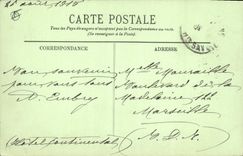 août 1910
CARTE POSTALE
Tous les Pays étrangers n'acceptent pas la Correspondance au recto.
(Se renseigner à la Poste)
CORRESPONDANCE
ADRESSE
Bon souvenir
pour vous tous
A. Embry
(Hôtel Continental)
Mlle
Boulevard de la
Madeleine
Marseille